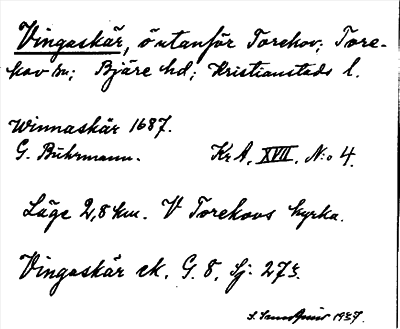 Vingaskär, ö utanför Torekov; Tore-
kov sn; Bjäre hd; Kristianstads l.
Winnaskär 1687.
G. Buhrmann. KrA, XVII, N:o 4.
Läge 2,8 km. V Torekovs kyrka.
Vingaskär ek. G. 8. Sj. 273.
1937.